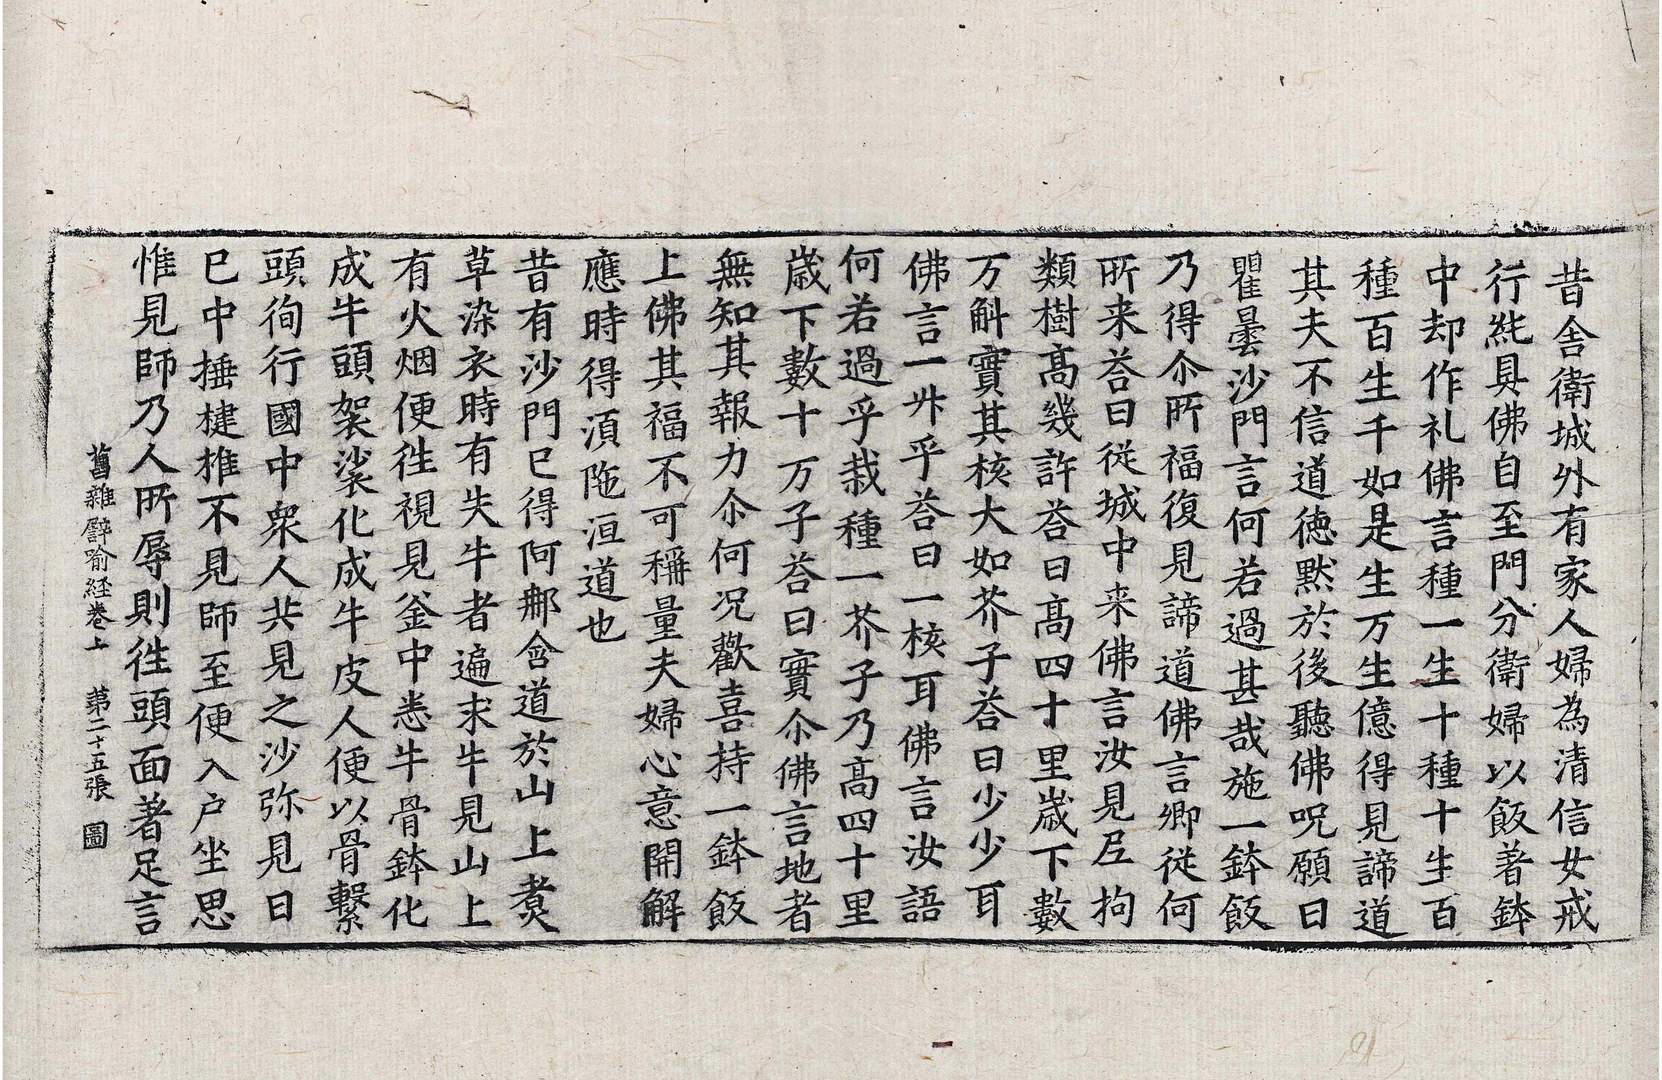 昔舎衛城外有家人婦為清信女戒
行純具佛自至門分衛婦以飯著鉢
中却作礼佛言種一生十種十生百
種百生千如是生万生億得見諦道
其夫不信道德黙於後聽佛呪願曰
瞿曇沙門言何若過甚哉施一鉢飯
乃得尒所福復見諦道佛言卿従何
所来荅曰従城中来佛言汝見𡰱拘
類樹髙幾許荅曰髙四十里歳下數
万斛實其核大如芥子荅曰少少耳
佛言一升乎荅曰一核耳佛言汝語
何若過乎栽種一芥子乃髙四十里
歳下數十万子荅曰實尒佛言地者
無知其報力尒何況歡喜持一鉢飯
上佛其福不可稱量夫婦心意開解
應時得湏陁洹道也
昔有沙門已得阿那含道於山上煑
草染衣時有失牛者遍求牛見山上
有火烟便徃視見釜中悉牛骨鉢化
成牛頭袈裟化成牛皮人便以骨繋
頭徇行國中衆人共見之沙弥見日
已中捶揵椎不見師至便入户坐思
惟見師乃人所辱則徃頭面著足言
舊雜譬喻経卷上　第二十五張　圖